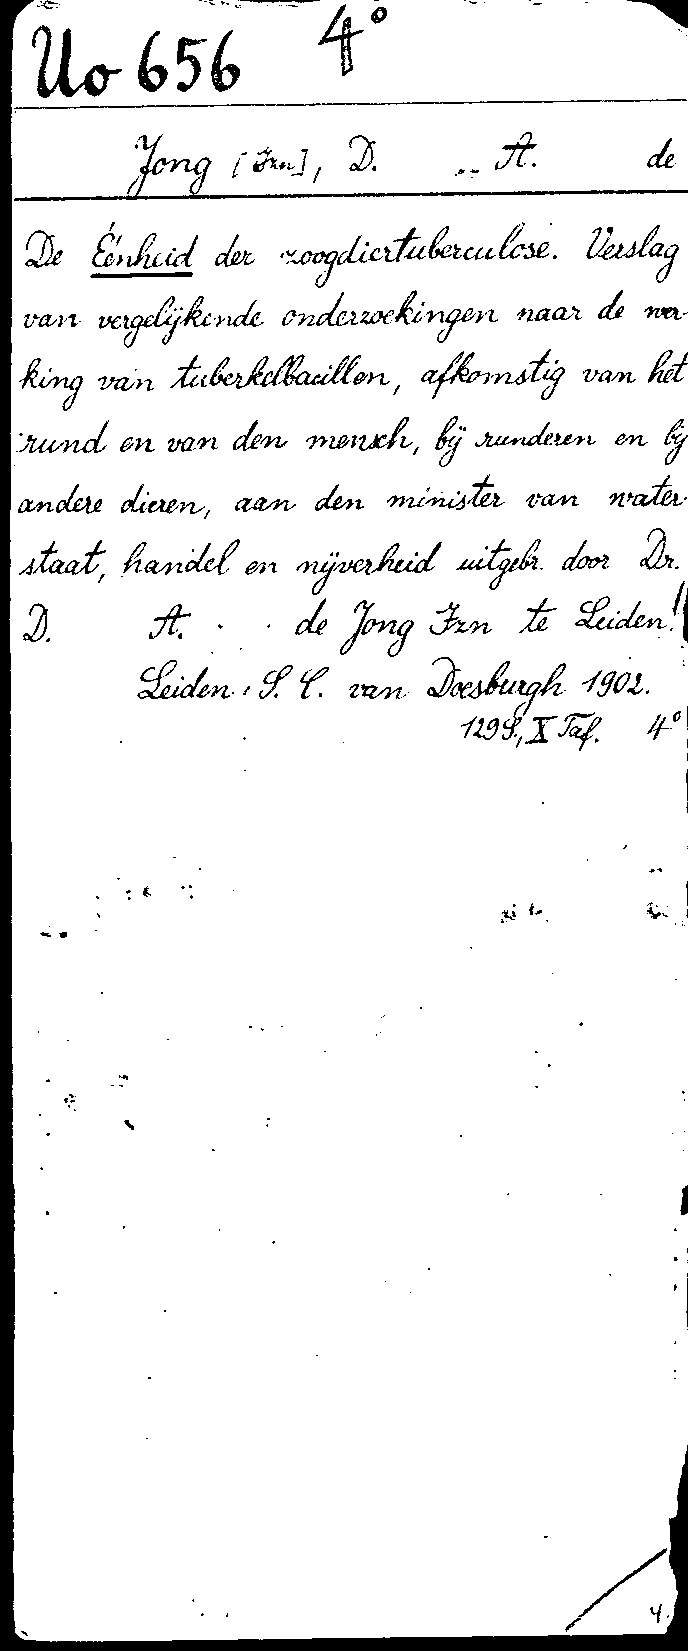 Uo 656 4°
Jong [Izn], D. A. de
De Éénheid der zoogdiertuberculose. Verslag
van vergelijkende onderzoekingen naar de wer-
king van tuberkelbacillen, afkomstig van het
rund en van den mensch, bij runderen en bij
andere dieren, aan den minister van water-
staat, handel en nijverheid uitgebr. door Dr.
D. A. de Jong Izn te Leiden.
Leiden: S. C. van Doesburgh 1902.
129 S., X Taf. 4°
4.